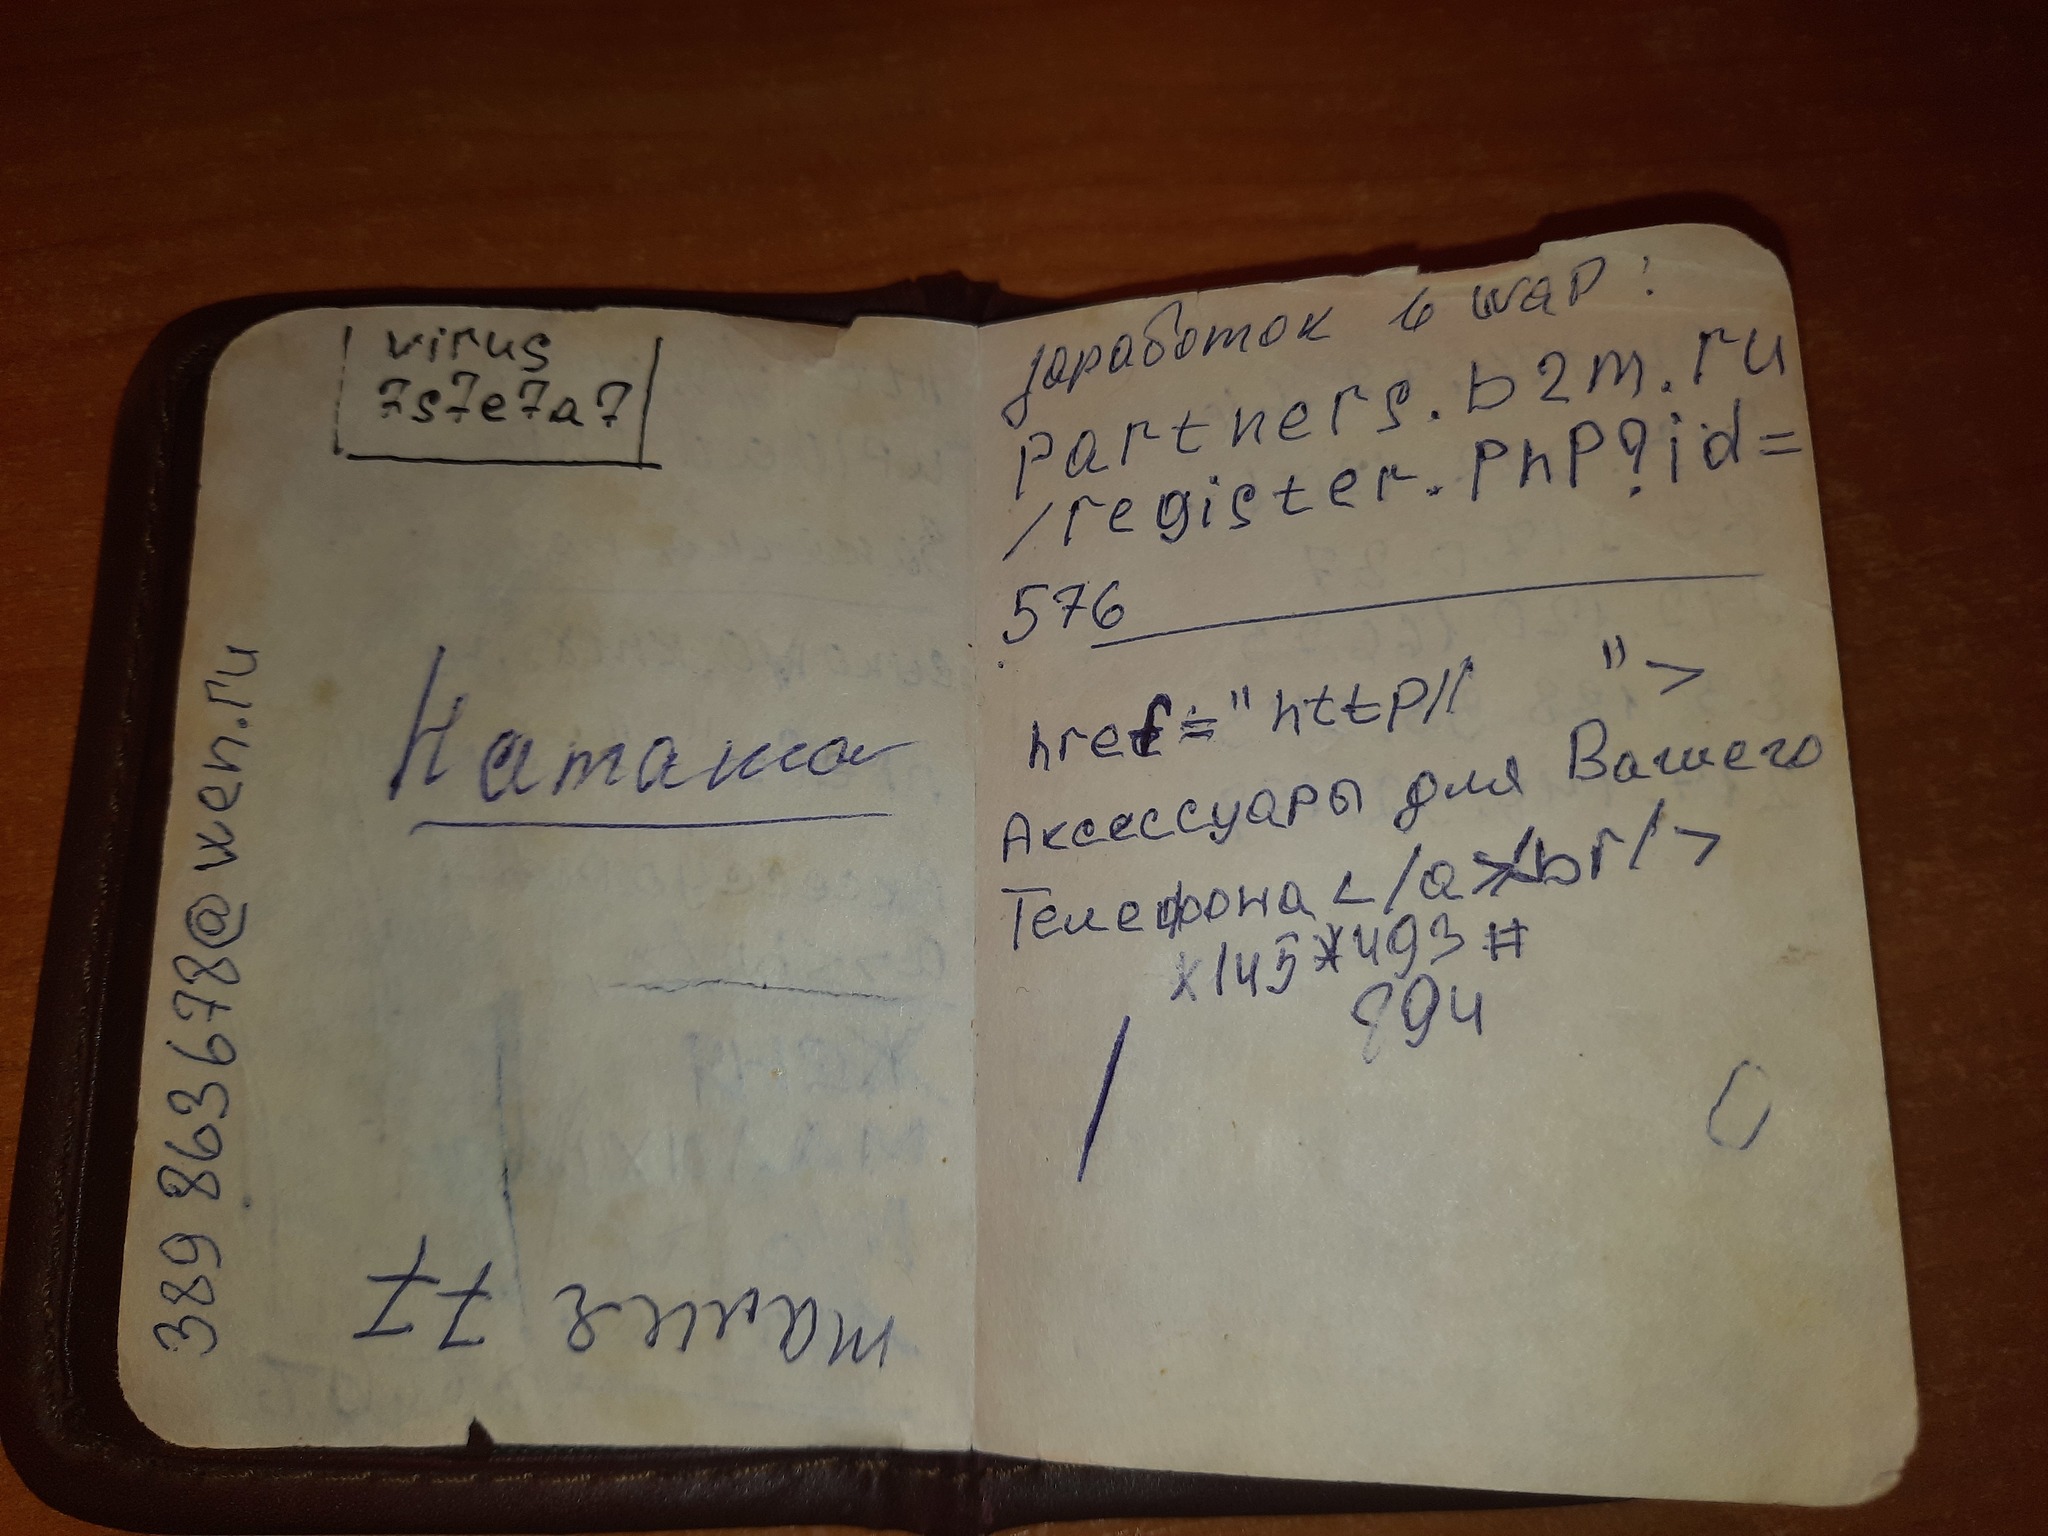 virus
7s7e7a7
Наташа
389863678@wen.ru
77
заработок в wap:
partners.b2m.ru
/register.php?id=
576
href="http// ">
Аксессуары для Вашего
Телефона </a><br/>
*145*493#
894